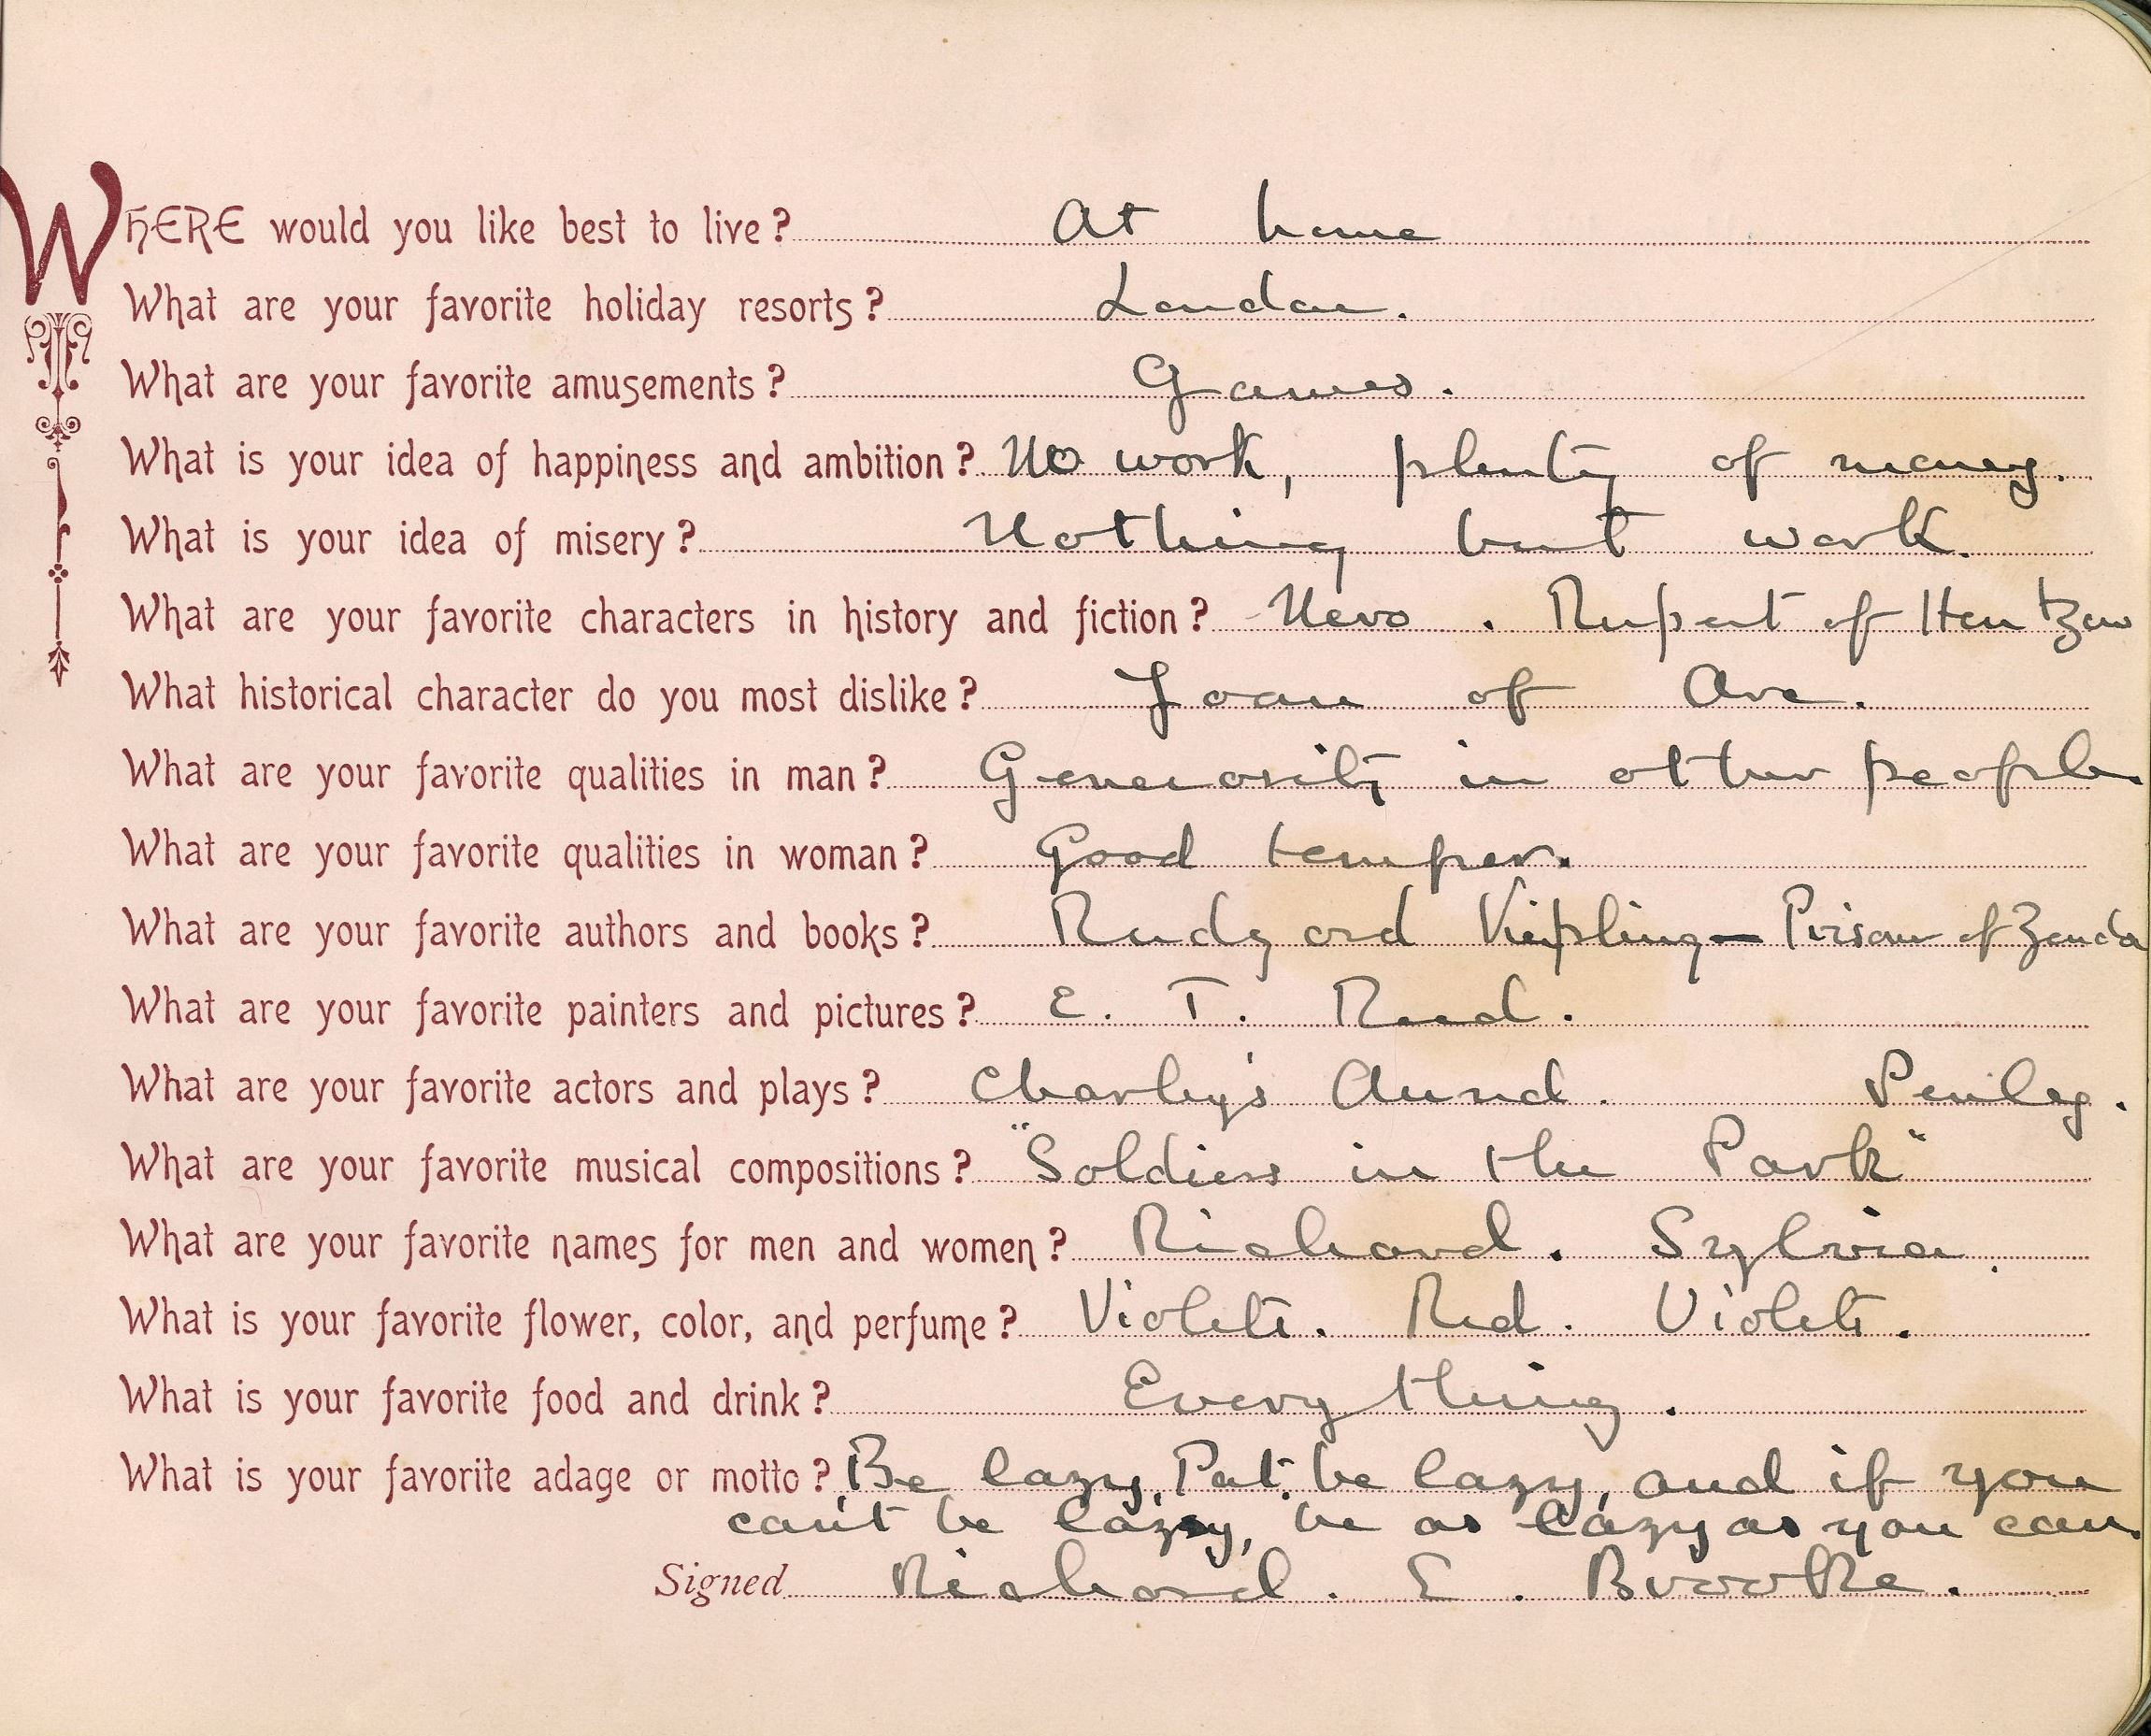 WHERE would you like best to live? At home
What are your favorite holiday resorts? London.
What are your favorite amusements? Games.
What is your idea of happiness and ambition? No work, plenty of money.
What is your idea of misery? Nothing but work.
What are your favorite characters in history and fiction? Nero. Rupert of Hentzau
What historical character do you most dislike? Joan of Arc.
What are your favorite qualities in man? Generosity in other people.
What are your favorite qualities in woman? Good temper.
What are your favorite authors and books? Rudyard Kipling - Prisoner of Zenda
What are your favorite painters and pictures? E. T. Reed.
What are your favorite actors and plays? Charley's Aunt. Penley.
What are your favorite musical compositions? "Soldiers in the Park"
What are your favorite names for men and women? Richard. Sylvia.
What is your favorite flower, color, and perfume? Violets. Red. Violets.
What is your favorite food and drink? Everything.
What is your favorite adage or motto? Be lazy, Pat, be lazy, and if you
can't be lazy, be as lazy as you can.
Signed Richard. E. Brooke.